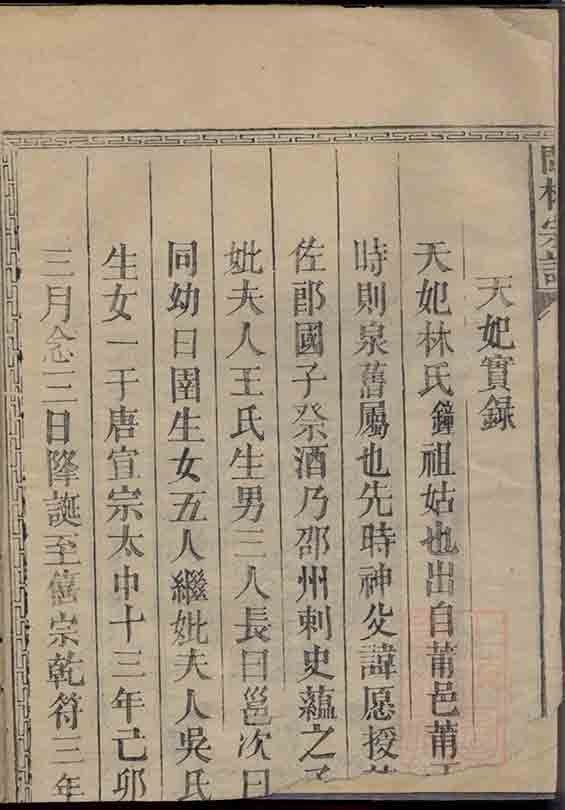 林宗譜
天妃實録
天妃林氏鐘祖姑也出自莆邑莆
時則泉舊屬也先時神父諱愿授
佐郎國子祭酒乃邵州刺史蘊之
妣夫人王氏生男三人長曰邕次曰
同幼曰圉生女五人繼妣夫人吳氏
生女一于唐宣宗太中十三年己卯
三月念三日降誕至僖宗乾符三年